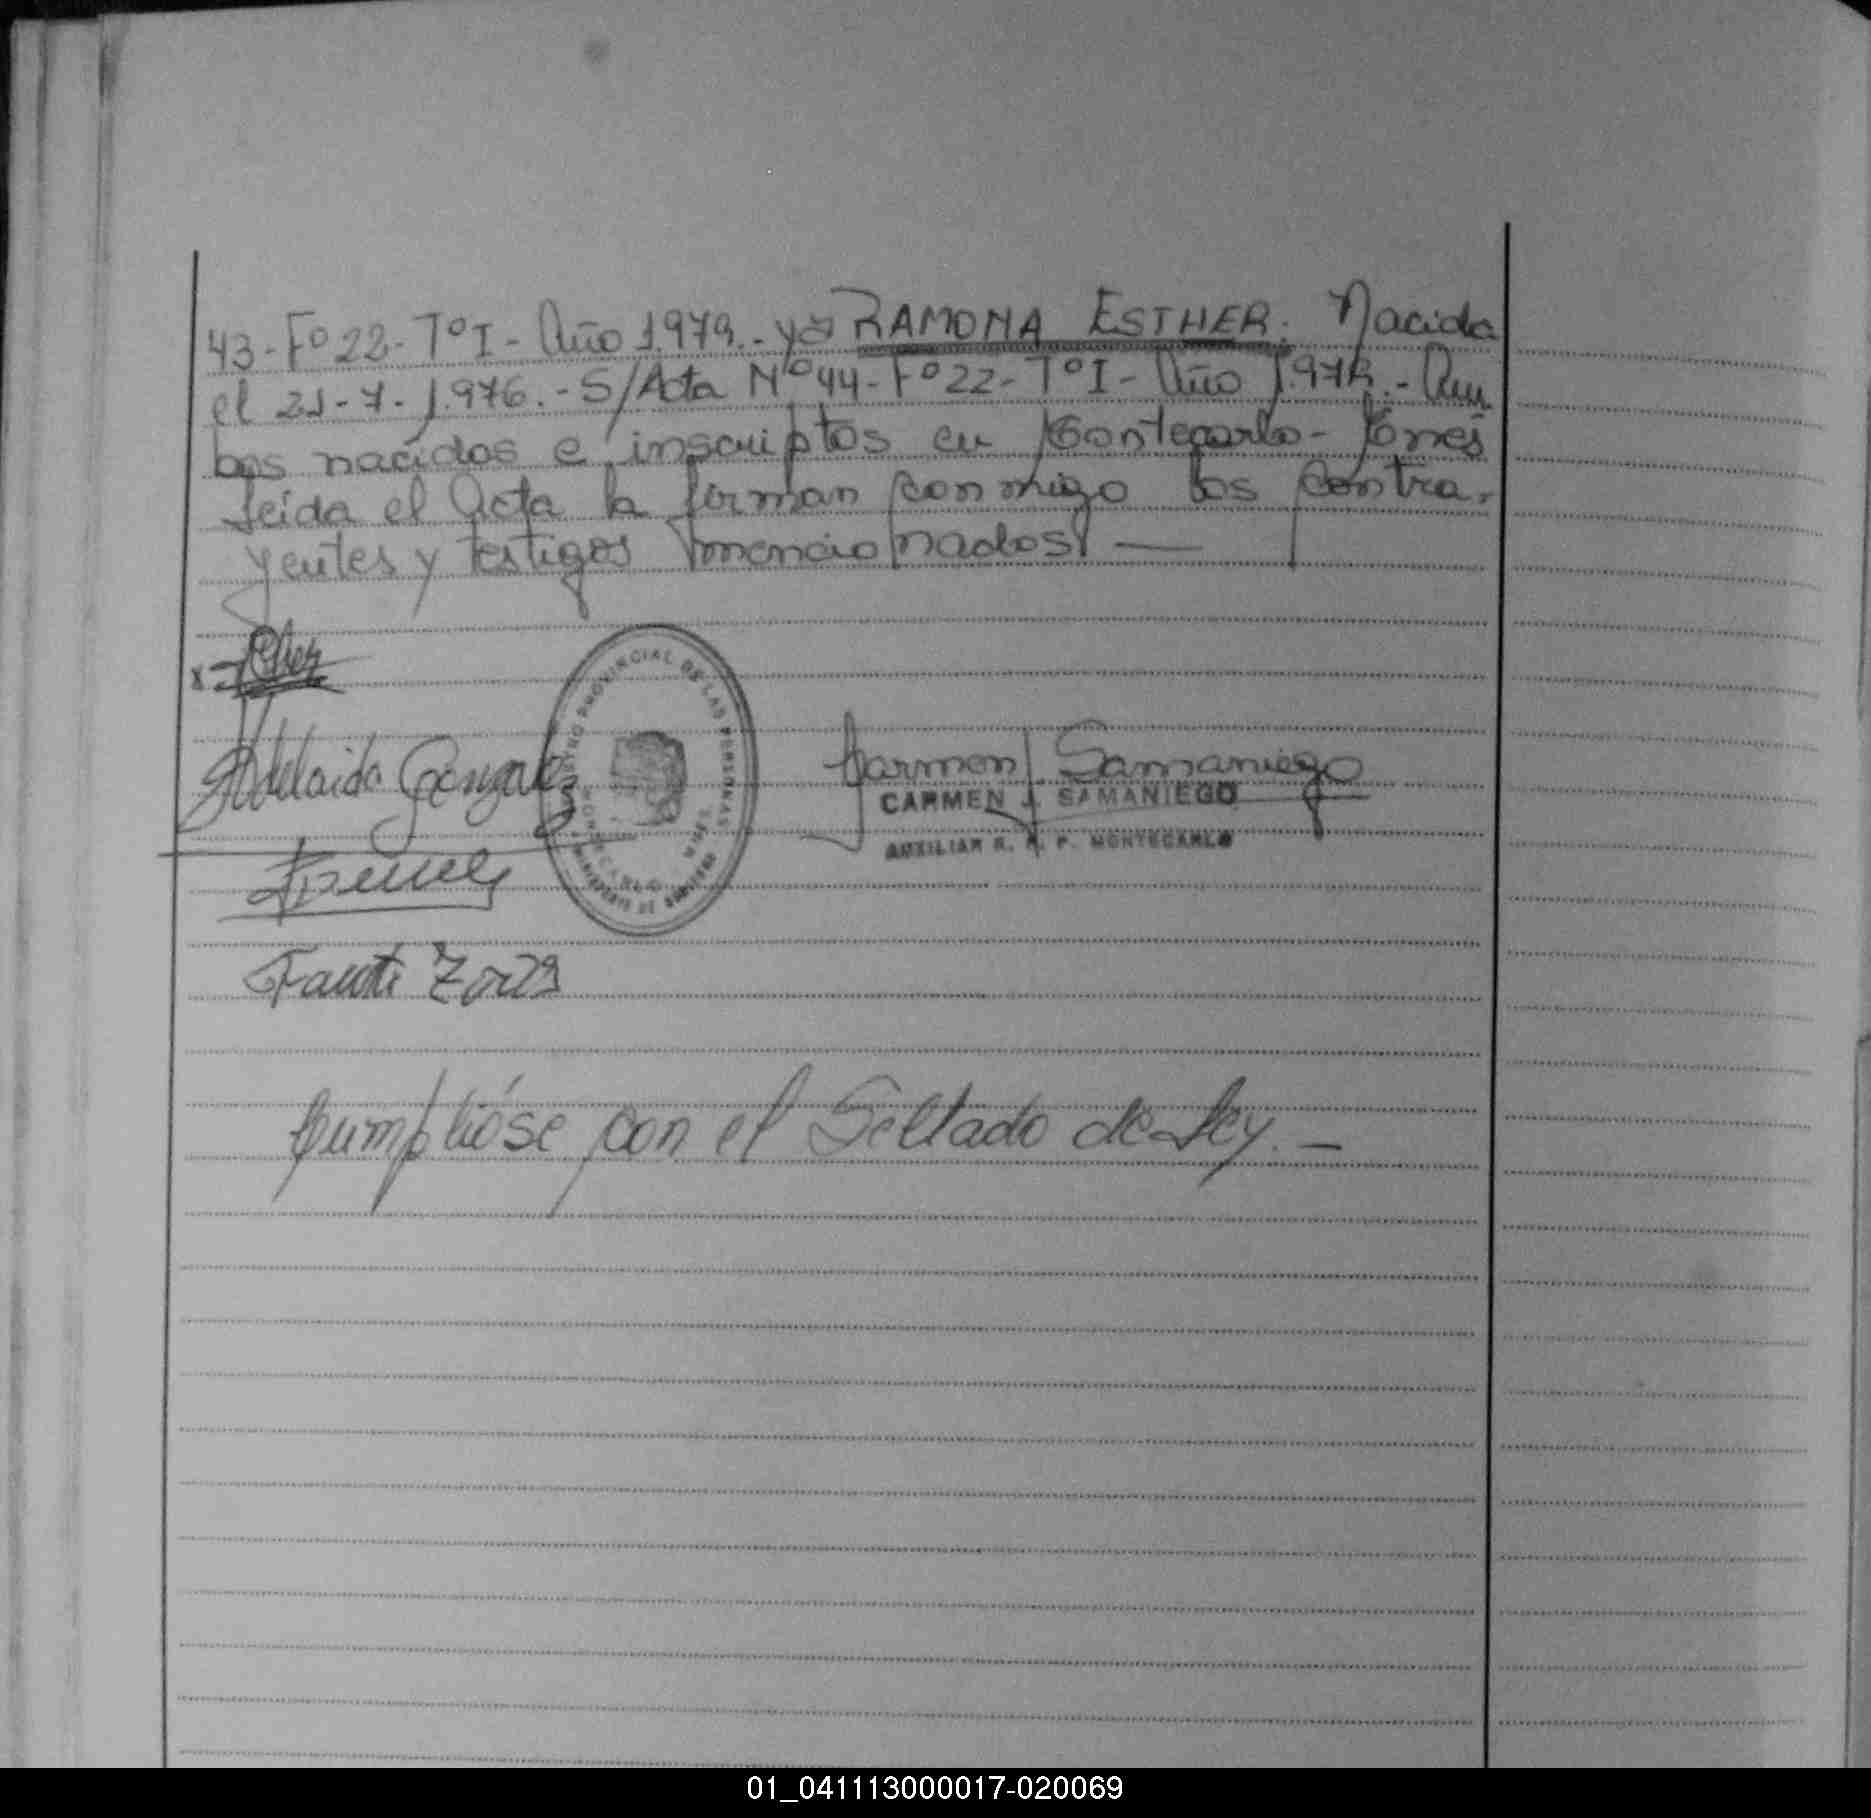 43-Fº22-TºI-Año 1.979.-y a RAMONA ESTHER. Nacida
el 21-7-1.976.-S/Acta Nº44-Fº22-TºI-Año 1.979.-Am
bos nacidos e inscriptos en Montecarlo-Mnes
Leida el Acta la firman conmigo los contra-
yentes y testigos mencionados —
Adelaida Gonzalez
REGISTRO PROVINCIAL DE LAS PERSONAS
MONTECARLO MNES.
MINISTERIO DE GOBIERNO
Carmen J. Samaniego
CARMEN J. SAMANIEGO
AUXILIAR R. P. P. MONTECARLO
Cumplióse con el Sellado de Ley. —
01_041113000017-020069